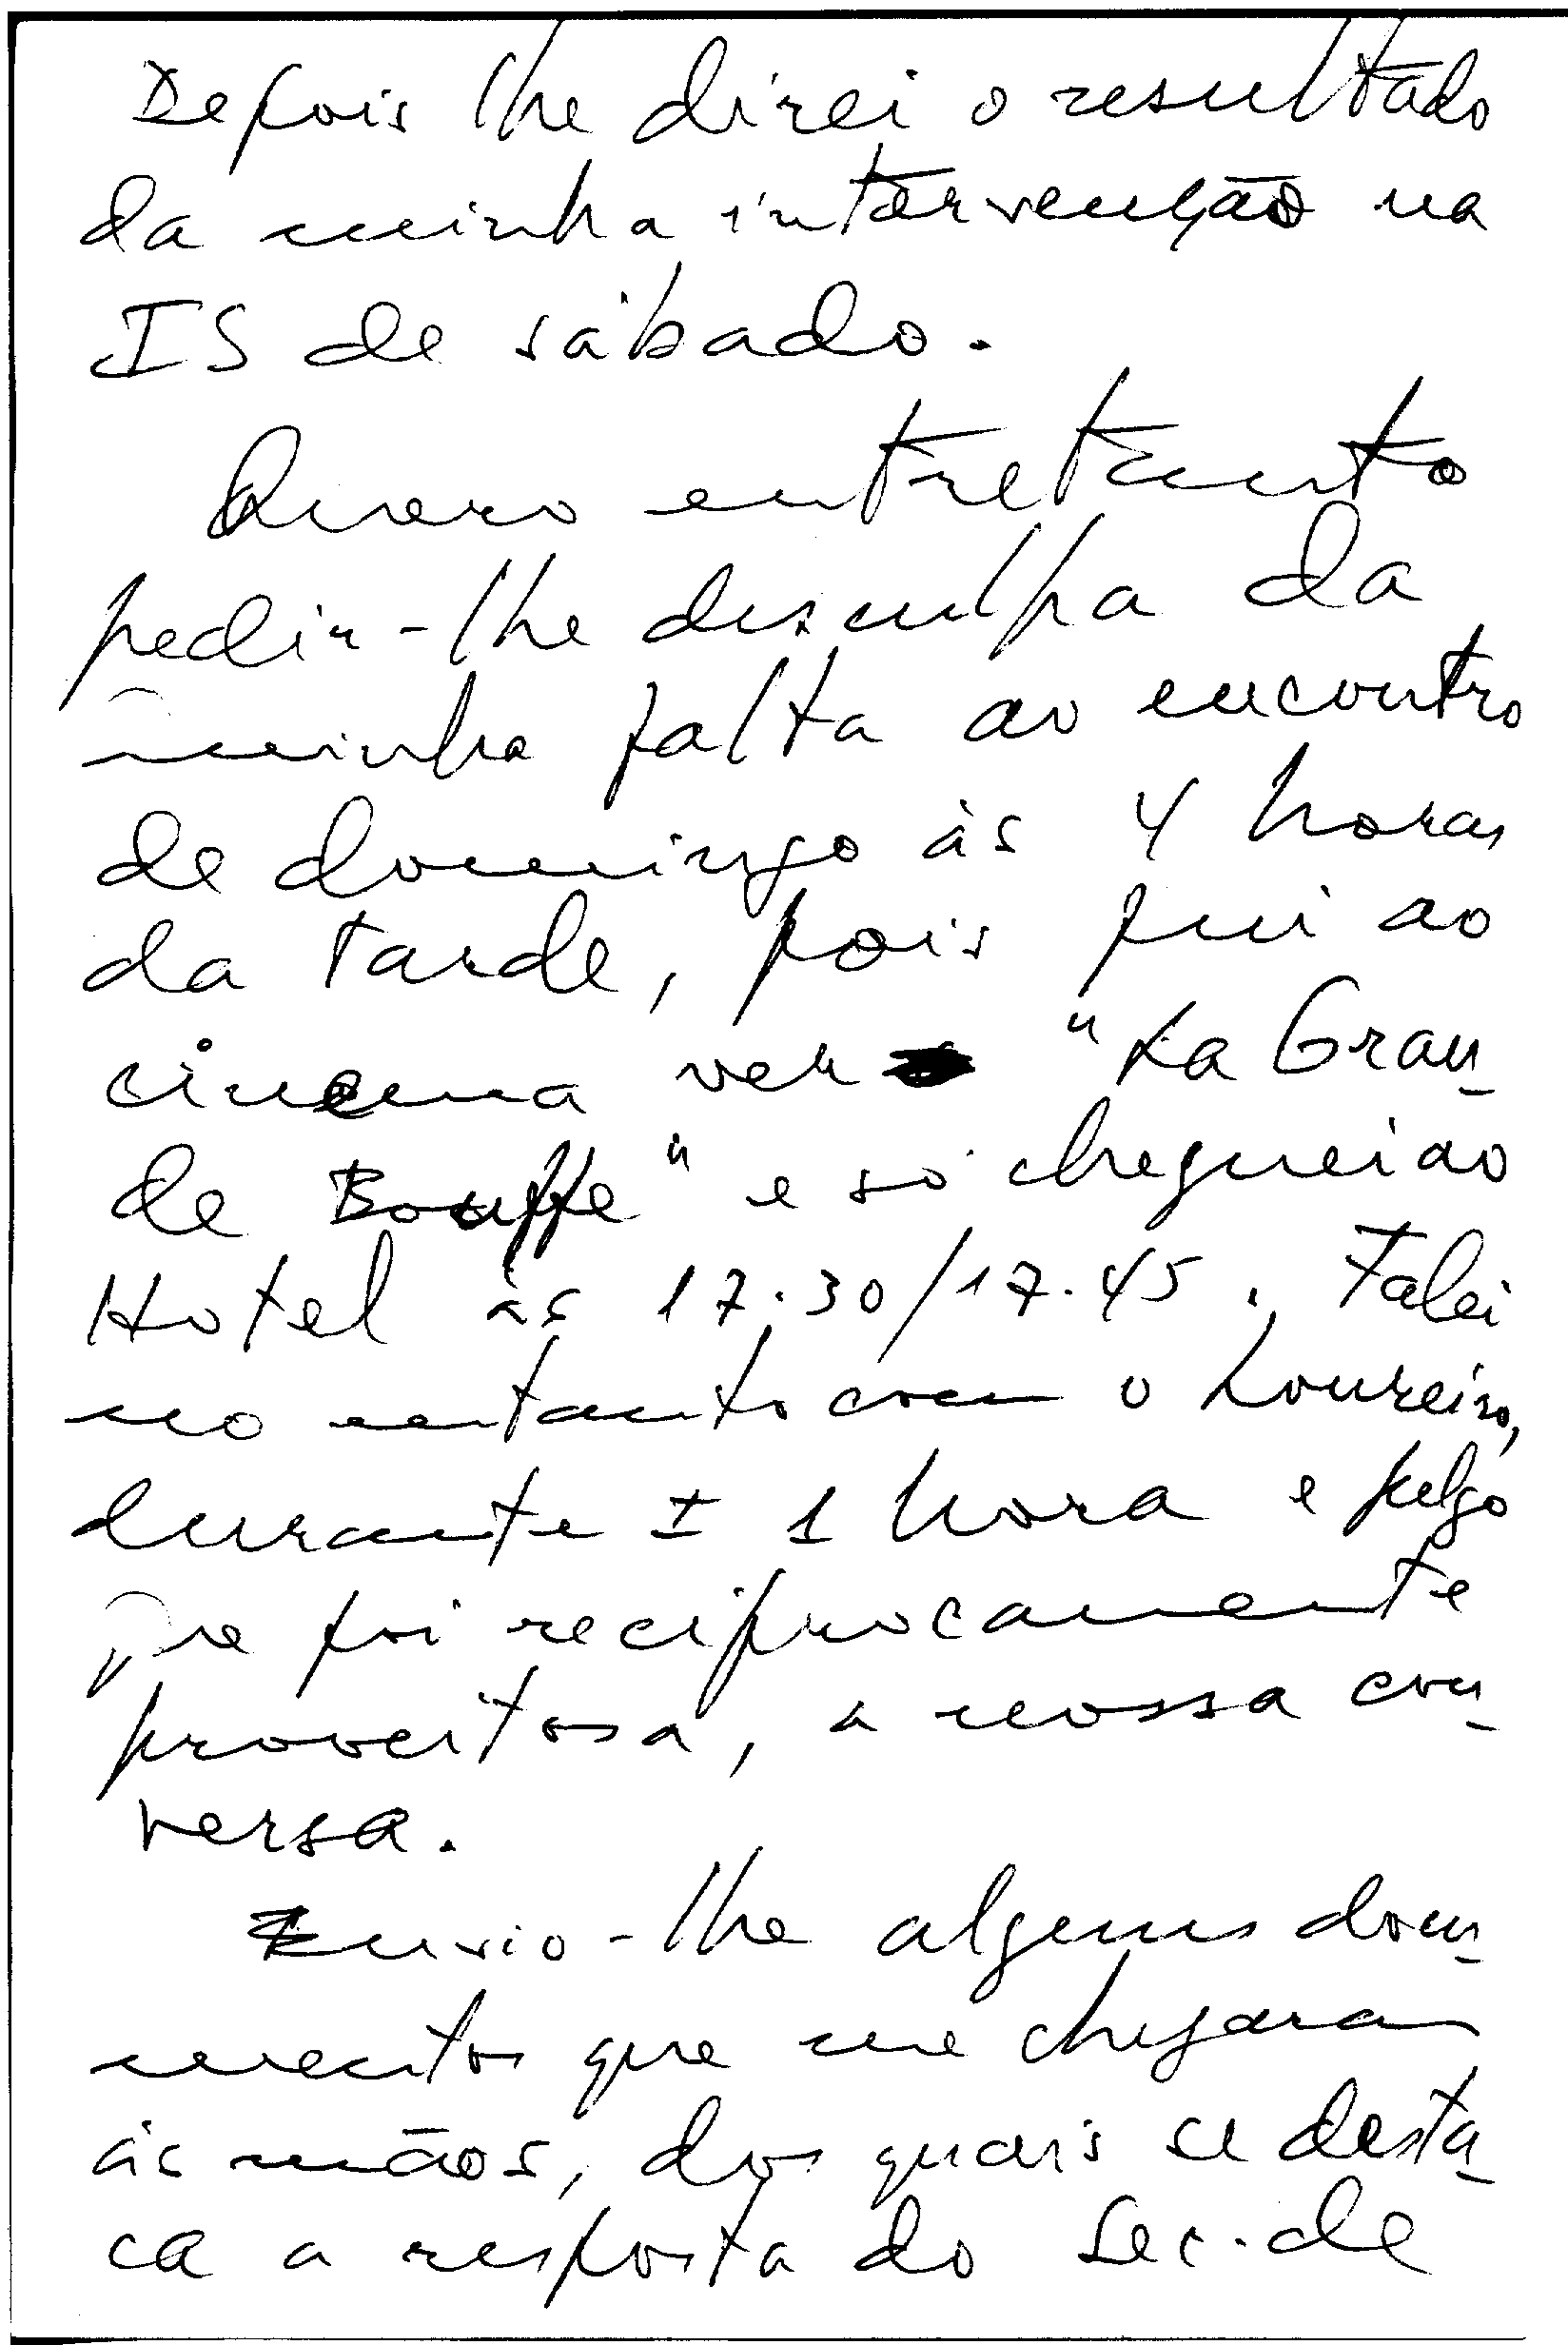 Depois lhe direi o resultado
da minha intervenção na
IS de sábado.
Quero entretanto
pedir-lhe desculpa da
minha falta ao encontro
de domingo às 4 horas
da tarde, pois fui ao
cinema ver "La Gran-
de Bouffe" e só cheguei ao
Hotel às 17.30/17.45. Falei
no entanto com o Loureiro,
durante ± 1 hora e julgo
que foi reciprocamente
proveitosa, a nossa con-
versa.
Envio-lhe alguns docu-
mentos que me chegaram
às mãos, dos quais se desta-
ca a resposta do Sec. de